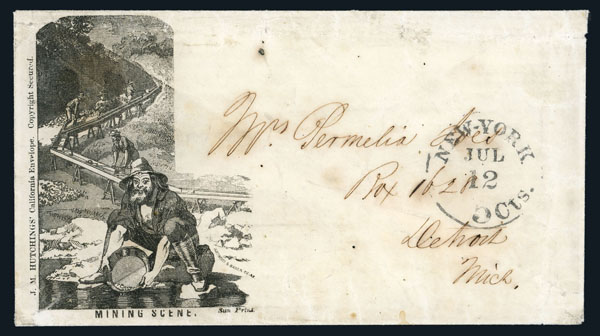 J. M. HUTCHINGS' California Envelope. Copyright Secured.
MINING SCENE.
Sun Print.
Mrs Permelia
Box 162
Detroit
Mich.
NEW-YORK
JUL
12
5 Cts.